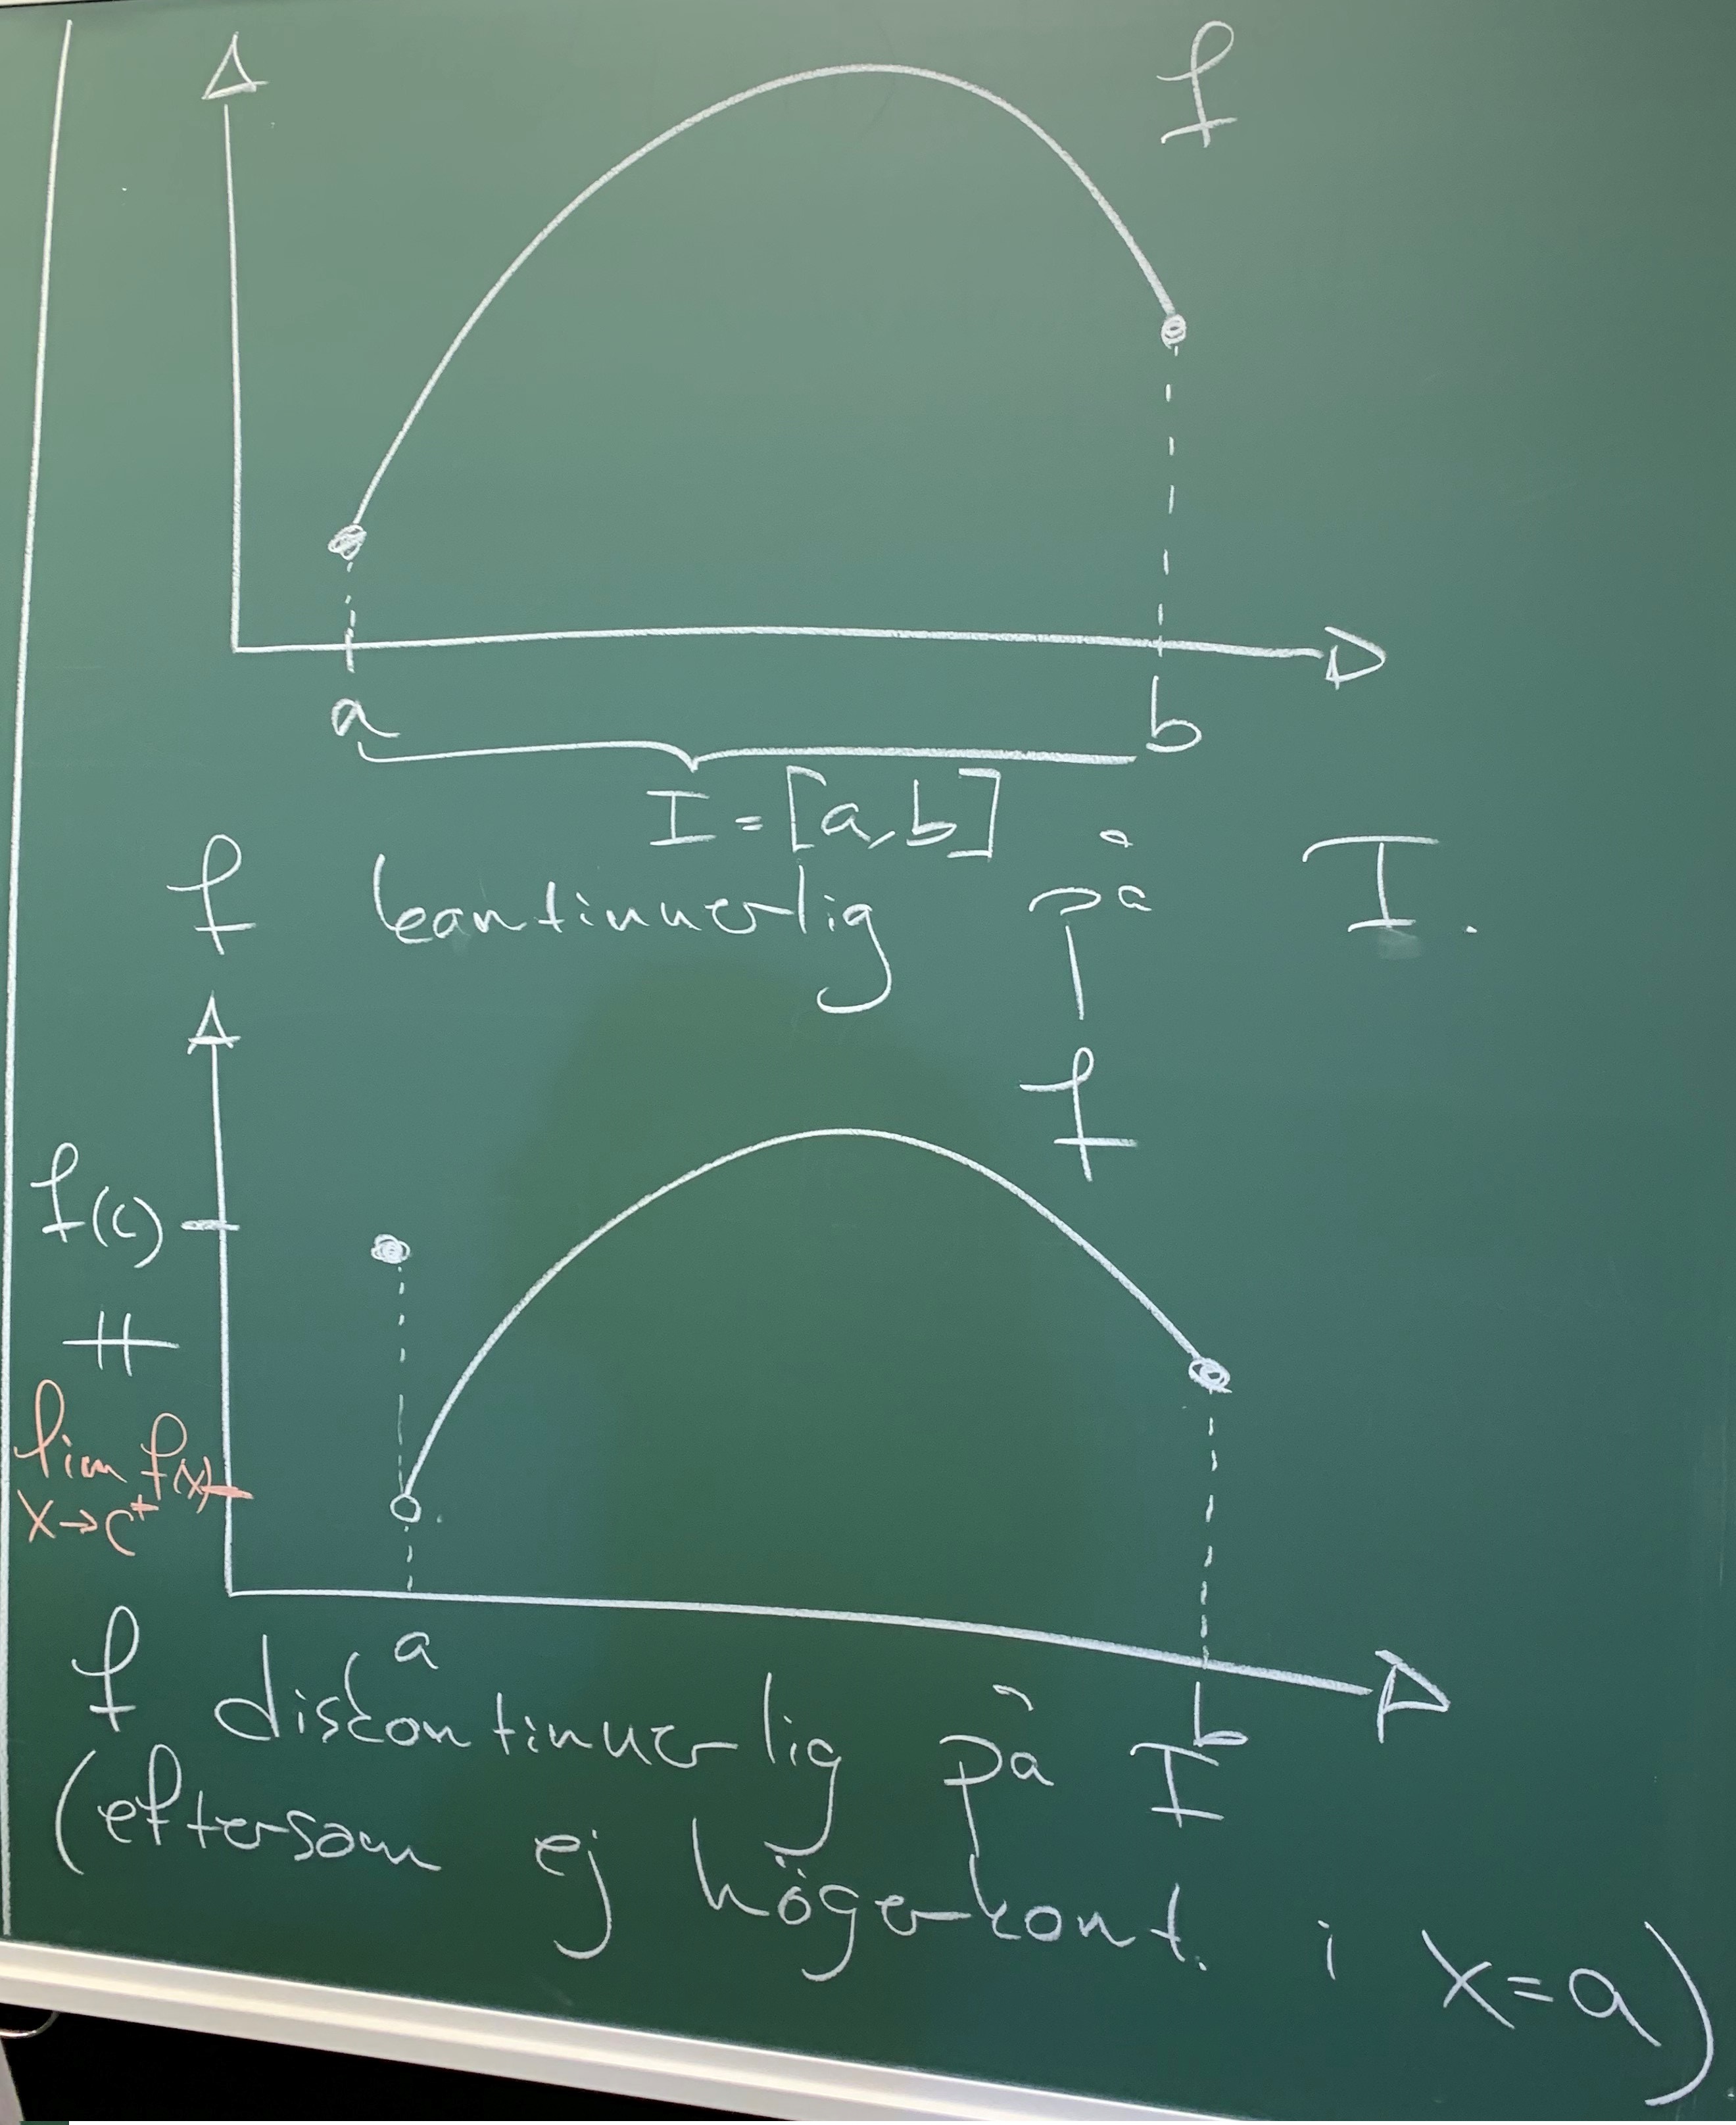 f
a b
I = [a,b]
f kontinuerlig på I.
f
f(c)
≠
lim f(x)
x→c⁺
a b
f diskontinuerlig på I
(eftersom ej högerkont. i x=a)